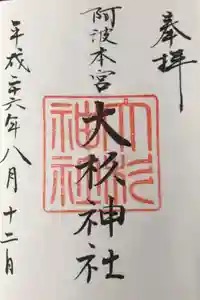 奉拝
阿波本宮
大杉神社
大杉神社
平成二十六年八月十二日